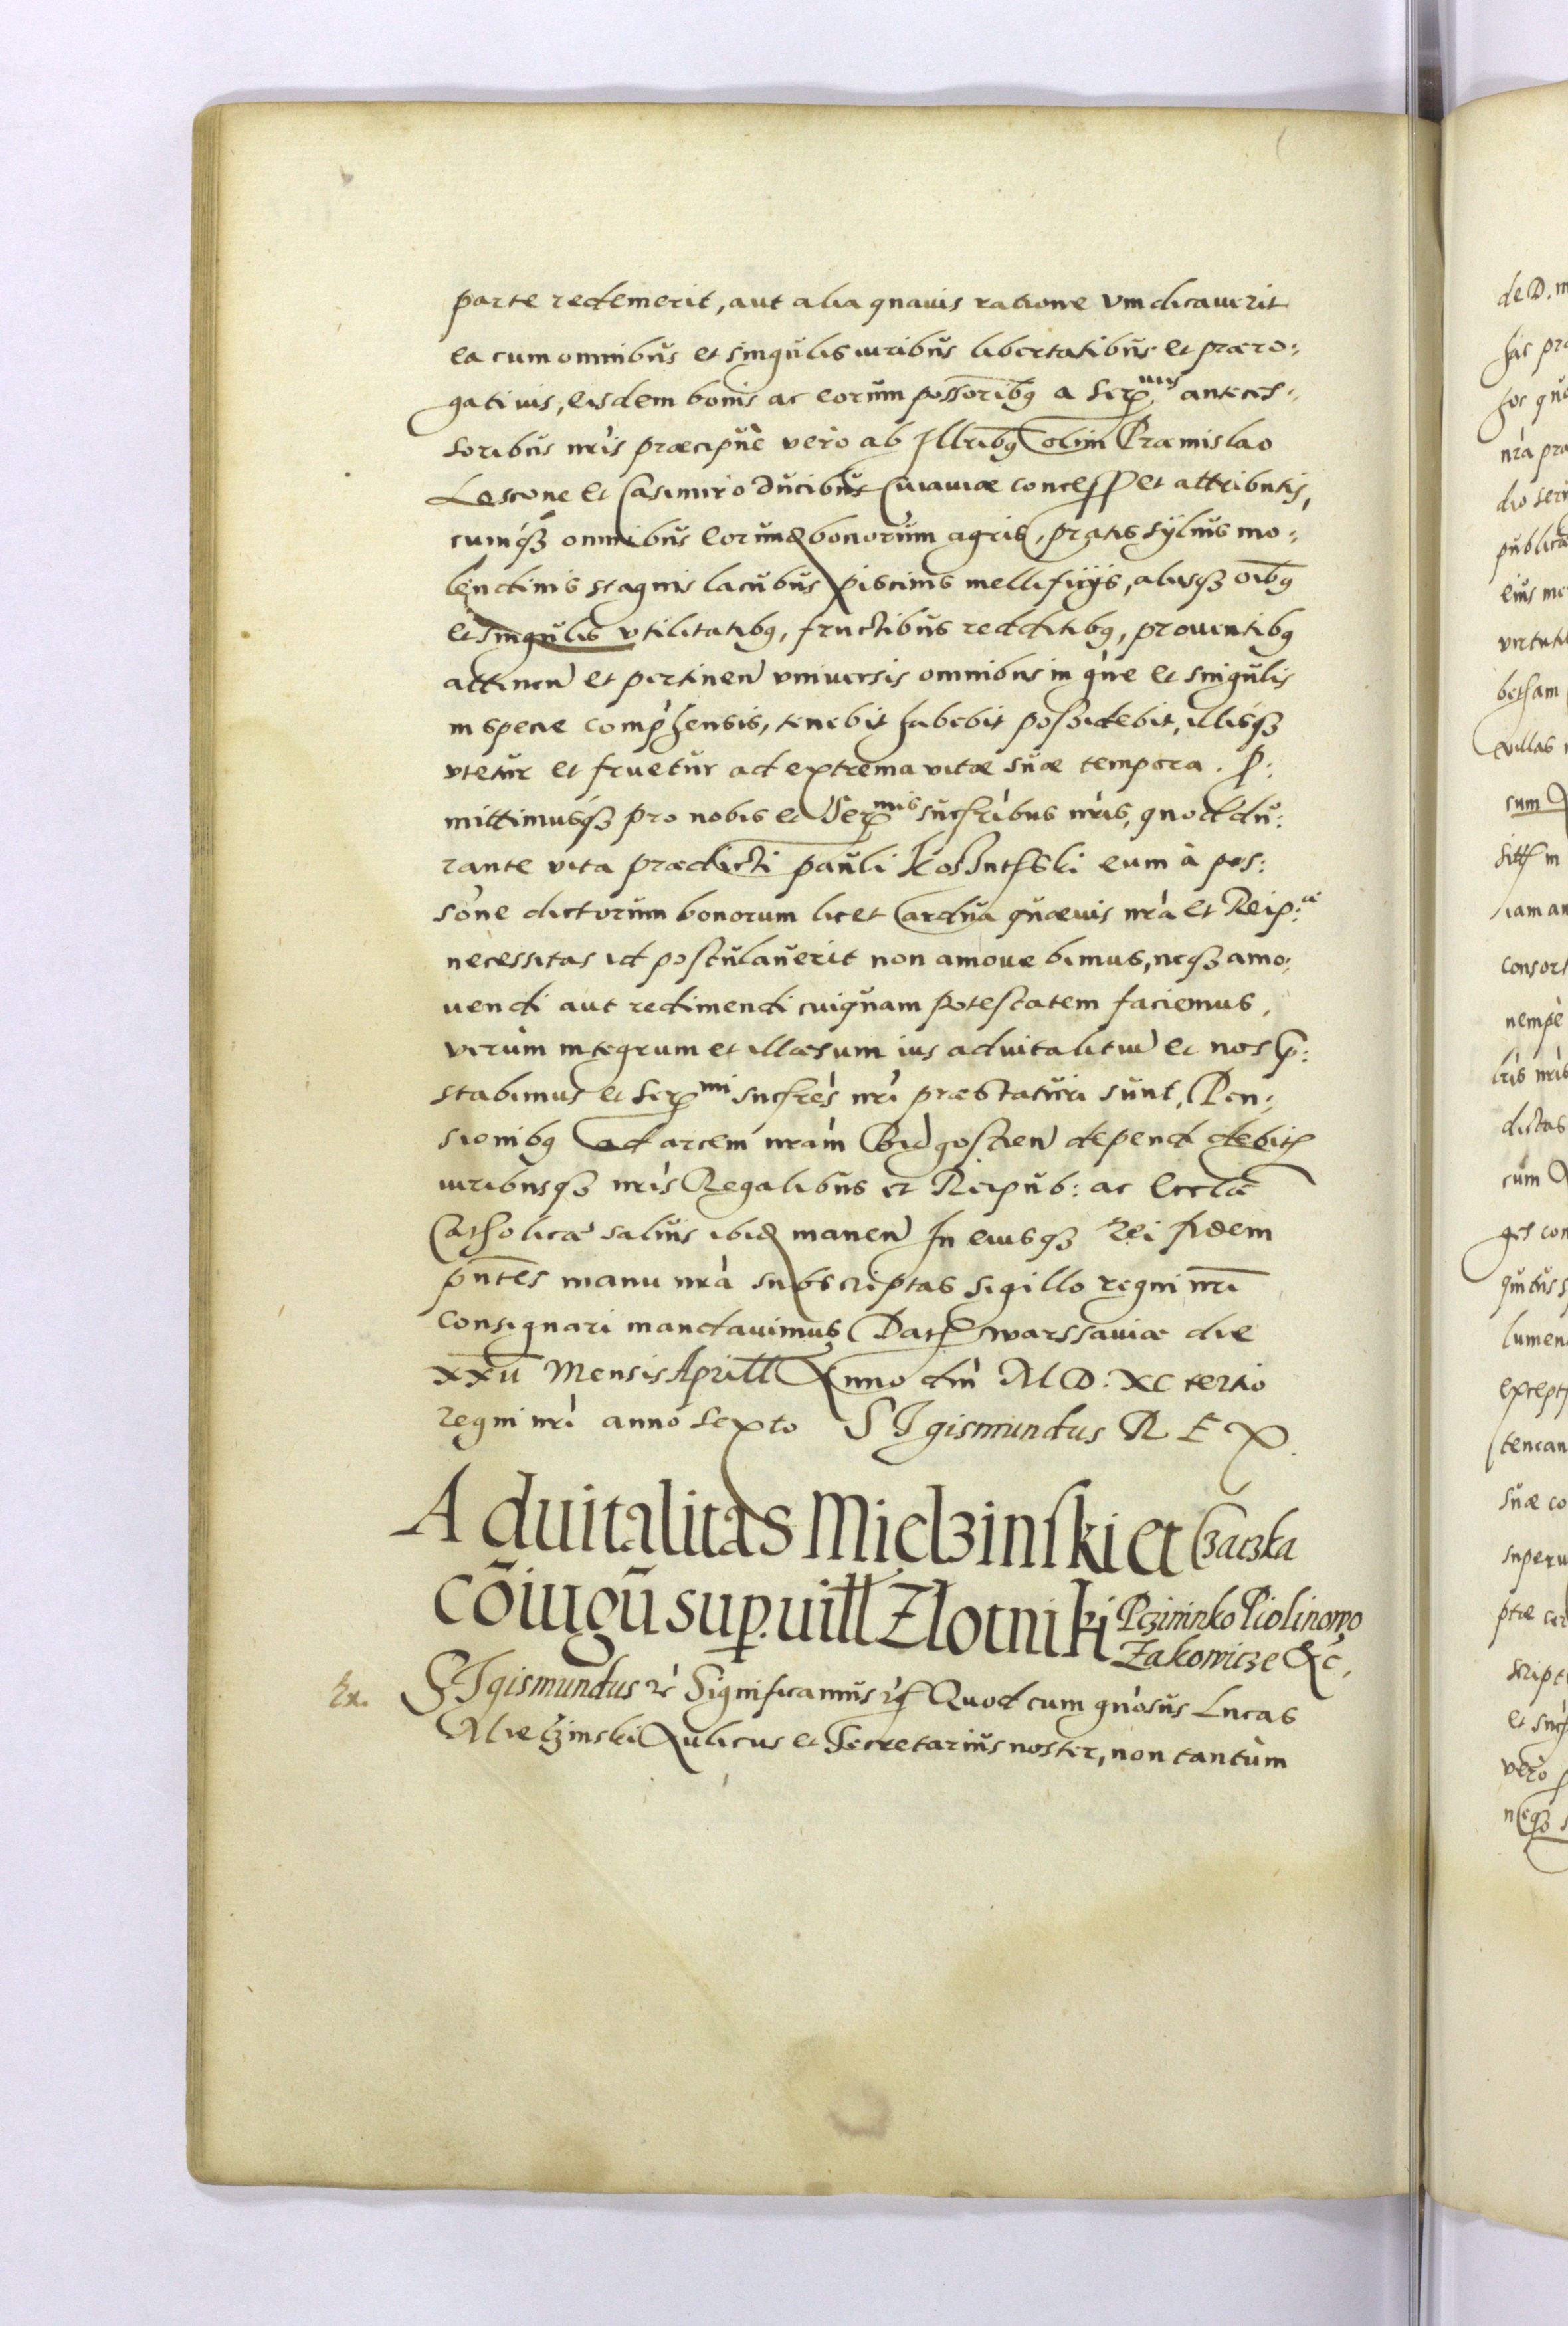 parte redemerit, aut alia quauis ratione vindicauerit
ea cum omnibus et singulis iuribus libertatibus et præro:
gatiuis, eisdem bonis ac eorum possoribq a Serᵐⁱˢ anteces:
soribus nris præcipuè verò ab Illribq olim Præmislao
Lescone et Casimiro Ducibus Cuiauiæ concess et attributis,
cumq3 omnibus eorund bonorum agris, pratis syluis mo:
lendinis stagnis lacubus piscinis mellificijs, alijsq3 oibq
et singulis vtilitatibq, fructibus redditibq, prouentibq
attinen et pertinen vniuersis omnibus in gne et singulis
in specie comprhensis, tenebit habebit possidebit, illisq3
vtetur et fruetur ad extrema vitæ suæ tempora. P:
mittimusq3 pro nobis et Serᵐⁱˢ succribus nris, quod du:
rante vita prædicti pauli eum à pos:
sone dictorum bonorum licet ardua quæuis nra et Reip:
necessitas id postulauerit non amouebimus, neq3 amo:
uendi aut redimendi cuiquam potestatem faciemus,
verùm integrum et illæsum ius aduitalitiu et nos p:
stabimus et Serᵐⁱ succres nri præstaturi sunt, Pen:
sionibq ad arcem nram Bidgostien depend debit
iuribusq3 nris Regalibus et Reipub: ac Eccliæ
Catholicæ saluis ibid manen In cuiusq3 rei fidem
pntes manu nra subscriptas sigillo regni nri
consignari mandauimus Dat warssauiæ die
Mensis Aprill Anno dni M D. XC tertio
regni nri anno sexto SIgismundus R E X.
Aduitalitas Mielzinski et Czaczka
cõiugũ sup. uill Zlotniki Pczininko Piolinowo
Zakowicze &c.
Ex. SIgismundus rc Significamus rc Quod cum gnosus Lucas
Mielzinski Aulicus et Secretarius noster, non tantùm